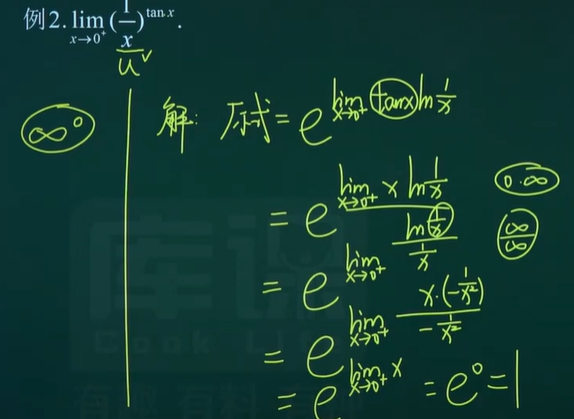 例2. lim_{x→0⁺} (1/x)^{tan x}.
u^v
∞⁰
解: 原式 = e^{lim_{x→0⁺} tanx ln 1/x}
= e^{lim_{x→0⁺} x ln 1/x} 0·∞
= e^{lim_{x→0⁺} (ln 1/x)/(1/x)} ∞/∞
= e^{lim_{x→0⁺} (x·(-1/x²))/(-1/x²)}
= e^{lim_{x→0⁺} x} = e⁰ = 1
库课